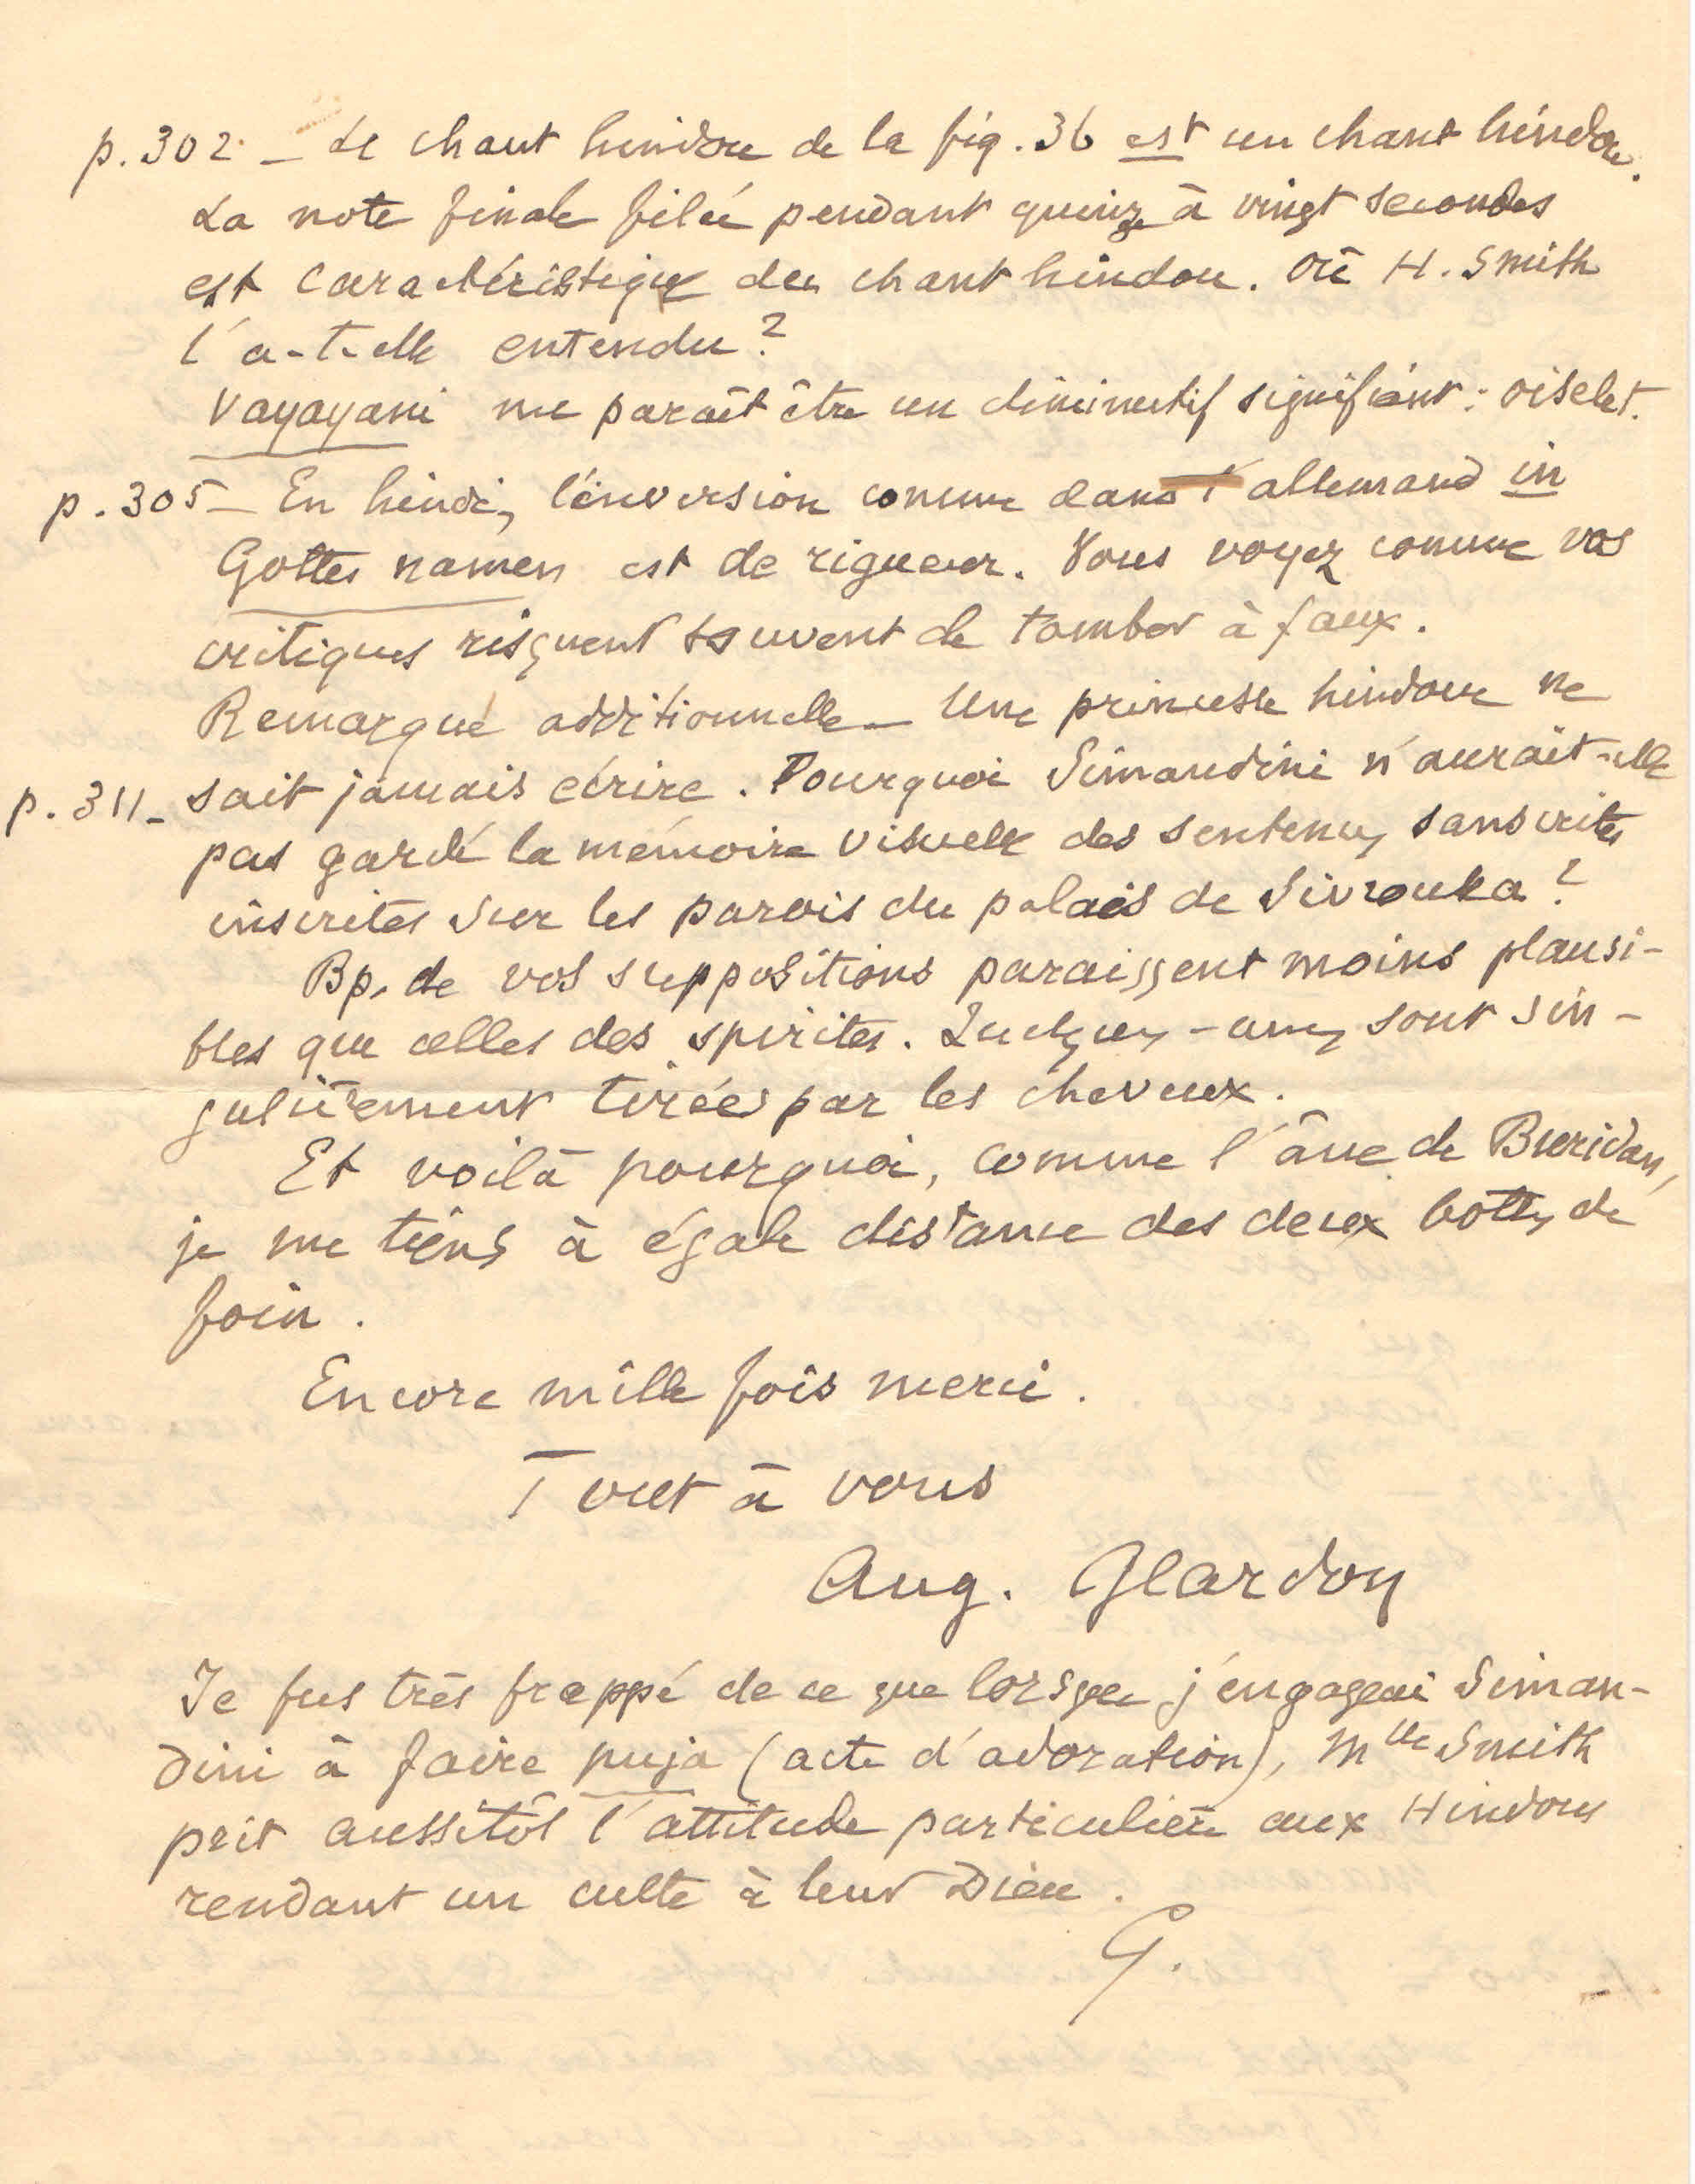 p. 302 – Le chant hindou de la fig. 36 est un chant hindou.
La note finale filée pendant quinze à vingt secondes
est caractéristique du chant hindou. Où H. Smith
l'a-t-elle entendu?
Vayayani me paraît être un diminutif signifiant : oiselet.
p. 305 – En hindi, l'inversion comme dans l'allemand in
Gottes namen est de rigueur. Vous voyez comme vos
critiques risquent souvent de tomber à faux.
Remarque additionnelle – Une princesse hindoue ne
p. 311 – sait jamais écrire. Pourquoi Simandini n'aurait-elle
pas gardé la mémoire visuelle des sentences sanscrites
inscrites sur les parois du palais de Sivrouka?
Bp. de vos suppositions paraissent moins plausi-
bles que celles des spirites. Quelques-unes sont sin-
gulièrement tirées par les cheveux.
Et voilà pourquoi, comme l'âne de Buridan,
je me tiens à égale distance des deux bottes de
foin.
Encore mille fois merci.
Tout à vous
Aug. Glardon
Je fus très frappé de ce que lorsque j'engageai Siman-
dini à faire puja (acte d'adoration), Mlle Smith
prit aussitôt l'attitude particulière aux Hindous
rendant un culte à leur Dieu.
G.